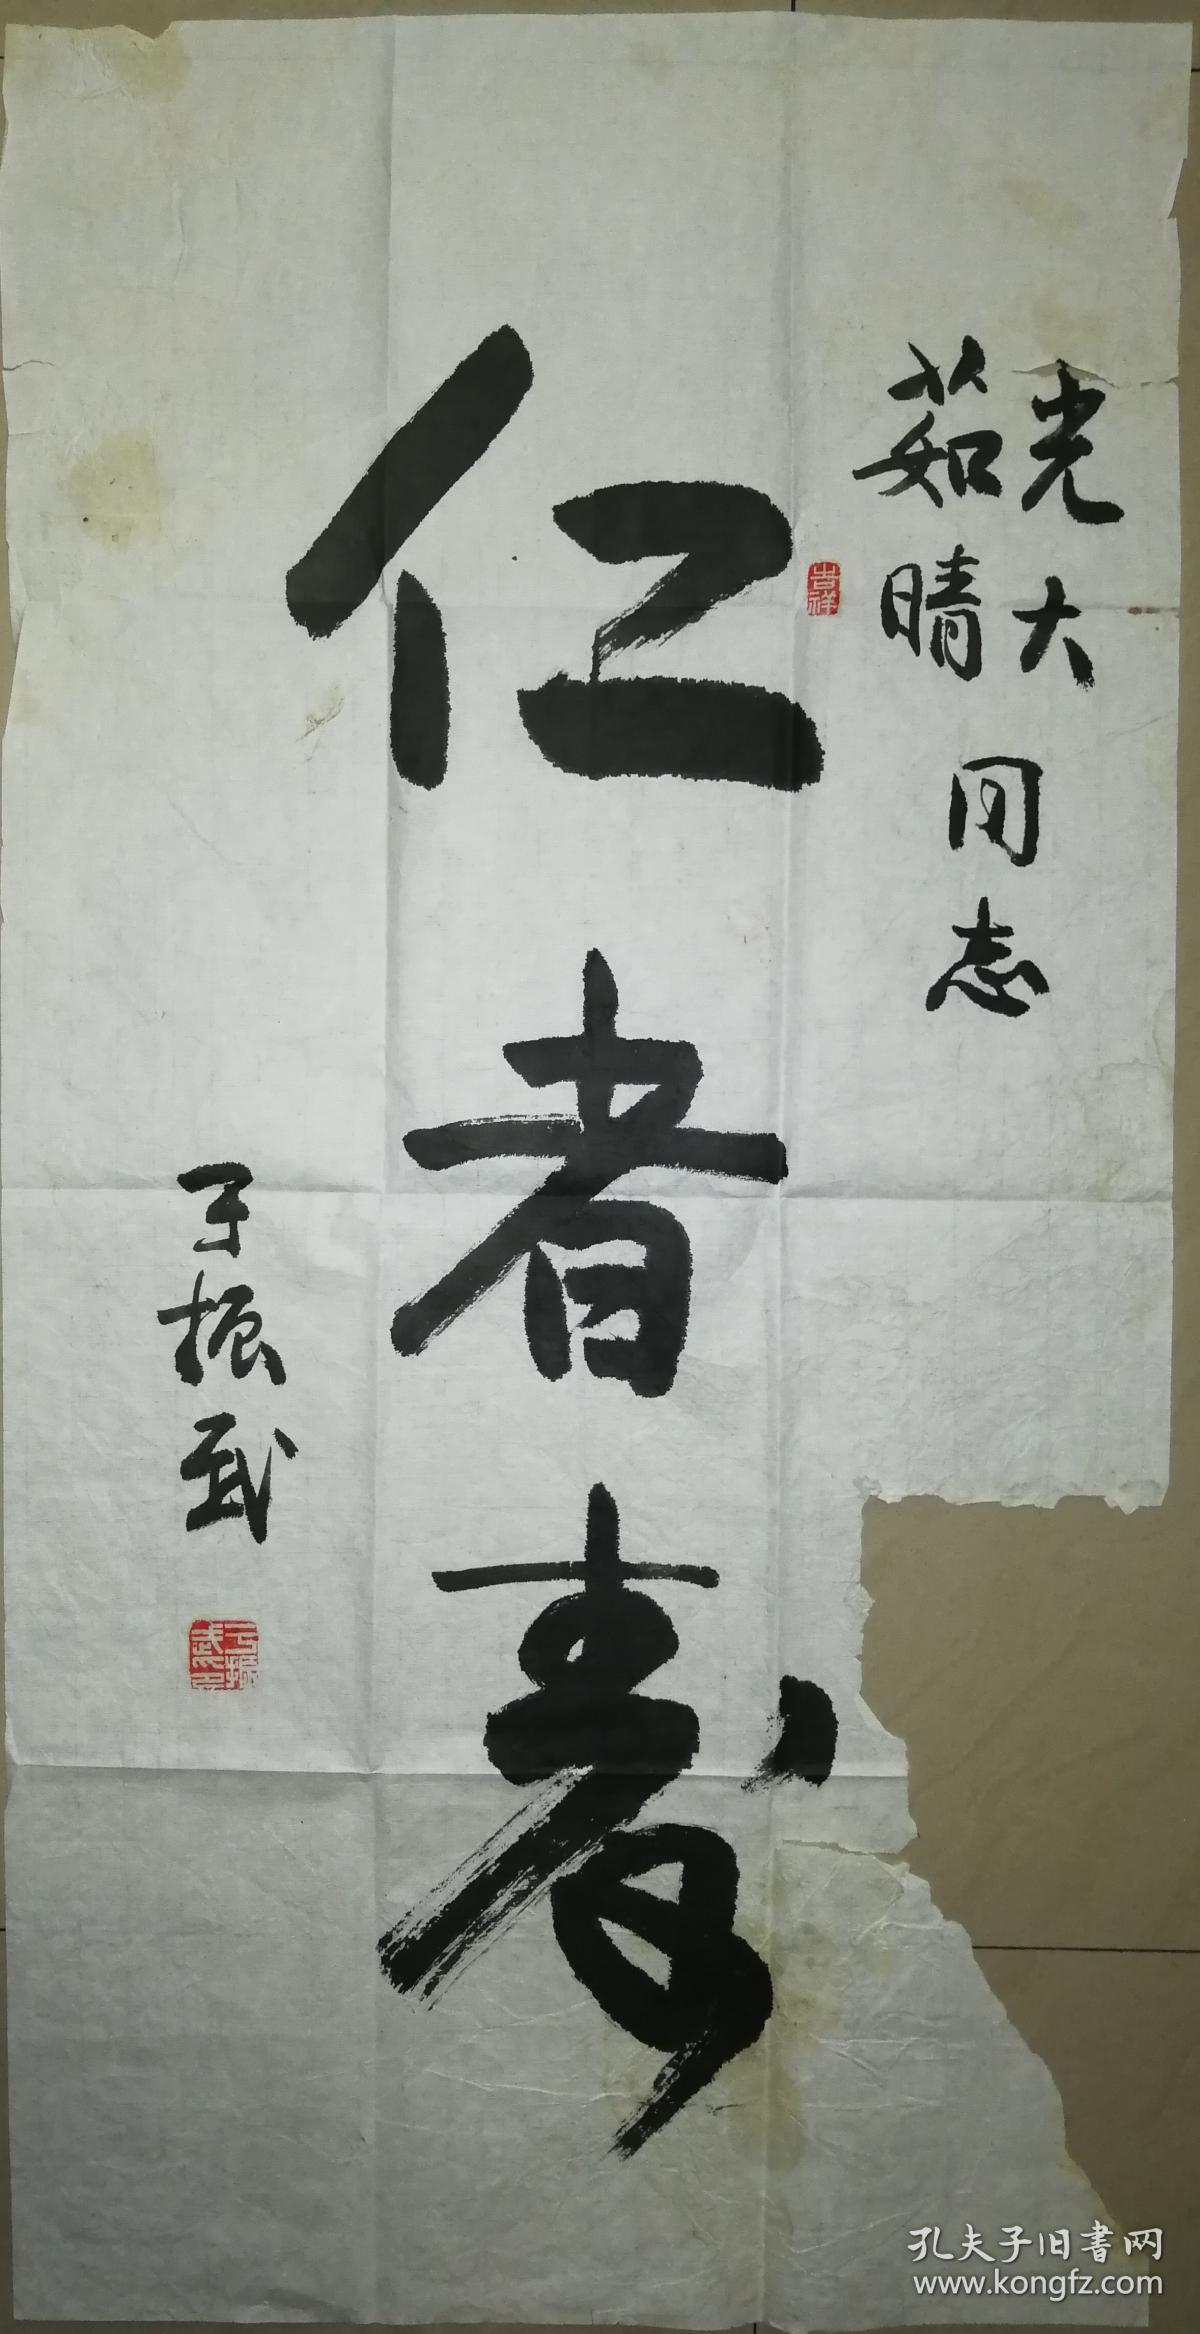 光大
茹晴
同志
吉祥
仁者寿
于振武
于振武印
孔夫子旧書网
www.kongfz.com